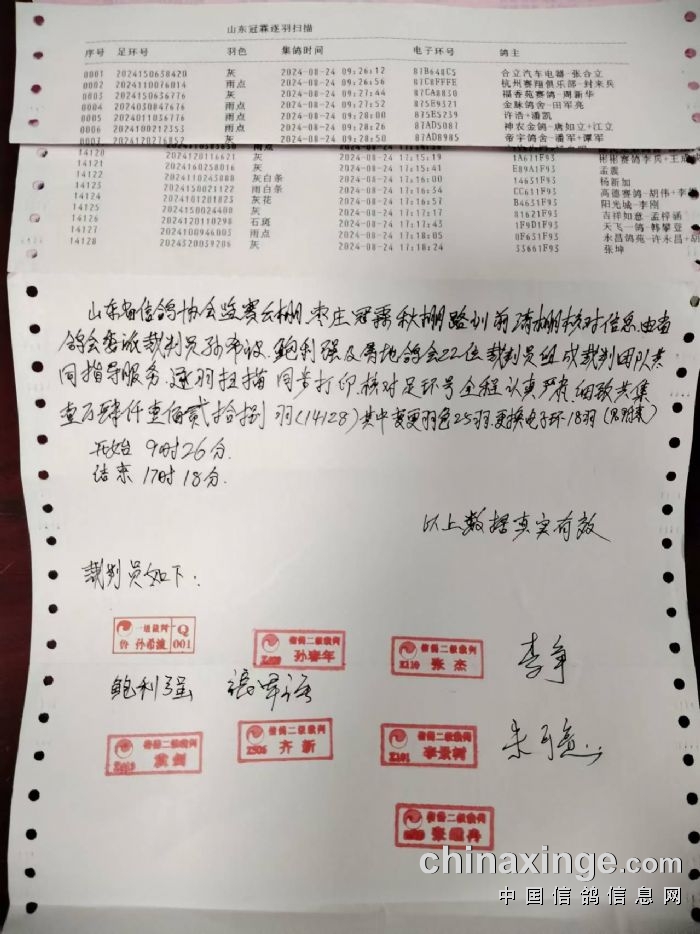 山东冠霖逐羽扫描
序号 足环号 羽色 集鸽时间 电子环号 鸽主
0001 2024150638420 灰 2024-08-24 09:26:12 87B648C5 合立汽车电器-张合立
0002 2024110076014 雨点 2024-08-24 09:26:56 87C8FFFE 杭州赛翔俱乐部-封来兵
0003 2024150636776 灰 2024-08-24 09:27:44 87CA8830 福香苑赛鸽-周新华
0004 2024030847676 雨点 2024-08-24 09:27:52 875E9321 金脉鸽舍-田军亮
0005 2024011036776 雨点 2024-08-24 09:28:00 875E5239 许浩+潘凯
0006 2024100212353 雨点 2024-08-24 09:28:26 87AD5087 神农金鸽-唐如立+江立
0007 2024120276852 灰 2024-08-24 09:28:50 87AD8985 帝宇鸽舍-潘军+谭军
14120 雨点
14121 2024120116621 灰 2024-08-24 17:15:19 1A671F93 彬彬赛鸽李兵+王
14122 2024160258016 灰 2024-08-24 17:15:41 E89A1F93 孟震
14123 2024160243888 灰白条 2024-08-24 17:16:00 14651F93 杨新加
2024150021122 雨白条 2024-08-24 17:16:34 CC611F93 高德赛鸽-胡伟+李
14124 2024101201823 灰花 2024-08-24 17:16:57 B4631F93 阳光城-李刚
14125 2024150024400 灰 2024-08-24 17:17:17 81621F93 吉祥如意-孟梓涵
14126 2024120110298 石斑 2024-08-24 17:17:43 1F9D1F93 天飞一鸽-韩攀登
14127 2024100946003 雨点 2024-08-24 17:18:05 0F631F93 永昌鸽苑-许永昌+胡
14128 2024320039206 灰 2024-08-24 17:18:24 33661F93 张坤
山东省信鸽协会监赛公棚,枣庄冠霖秋棚路训前清棚核对信息,由省
鸽会委派裁判员孙希波、鲍利强及当地鸽会22位裁判员组成裁判团队共
同指导服务,逐羽扫描 同步打印,核对足环号 全程认真严肃,细致共集
壹万肆仟壹佰贰拾捌 羽(14128)其中变更羽色25羽.更换电子环18羽(见附表)
开始 9时26分.
结束 17时18分.
以上数据真实有效
裁判员如下:
一级裁判 Q
鲁 孙希波 001
信鸽二级裁判
孙春年
信鸽二级裁判
Z110 张杰
李争
鲍利强
信鸽二级裁判
信鸽二级裁判
Z506 齐新
信鸽二级裁判
Z101 李景树
信鸽二级裁判
chinaxinge.com
中国信鸽信息网